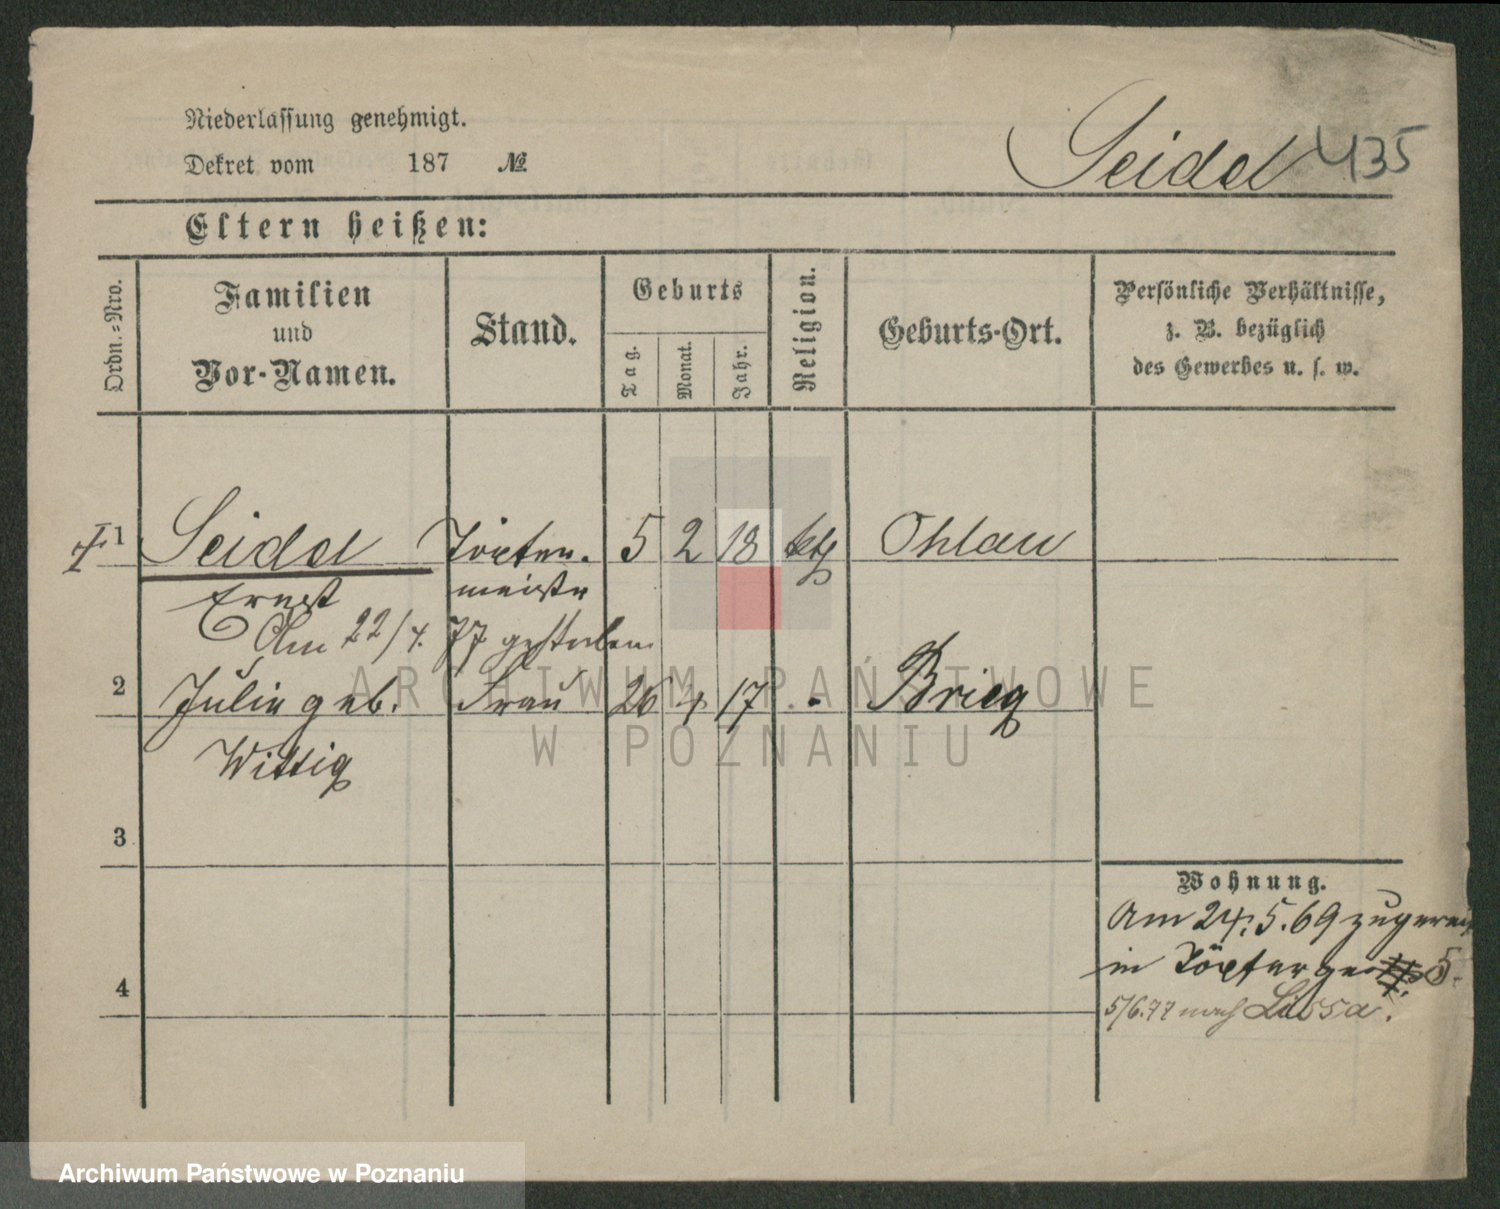 Niederlassung genehmigt.
Dekret vom 187 №
Seidel 435
Eltern heißen:
Ordn.-Nro.
Familien
und
Vor-Namen.
Stand.
Geburts
Tag.
Monat.
Jahr.
Religion.
Geburts-Ort.
Persönliche Verhältnisse,
z. B. bezüglich
des Gewerbes u. s. w.
1 Seidel 5 2 18 kth Ohlau
Ernst meister
Am 22/4. 77 gestorben
2 Julie geb. Frau 26 4 17 - Brieg
Wittig
3
Wohnung.
Am 24.5.69 zugereist
in Töpfergasse 5.
4
5/6.77 nach Lissa.
ARCHIWUM PAŃSTWOWE
W POZNANIU
Archiwum Państwowe w Poznaniu